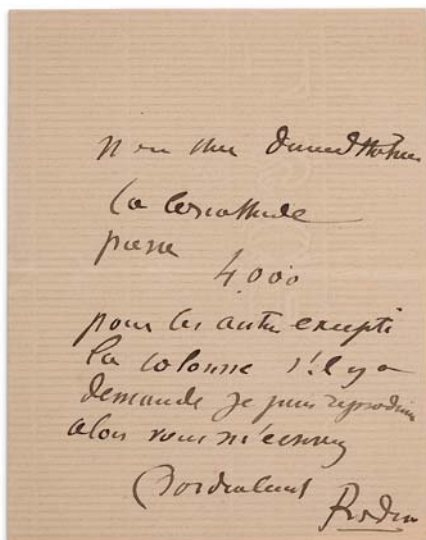 Mon cher Durand Huhns
La Cariathide
pierre
4.000
pour les autres excepté
la colonne s'il y a
demande je puis reproduire
alors vous m'écrirez
Cordialement
Rodin